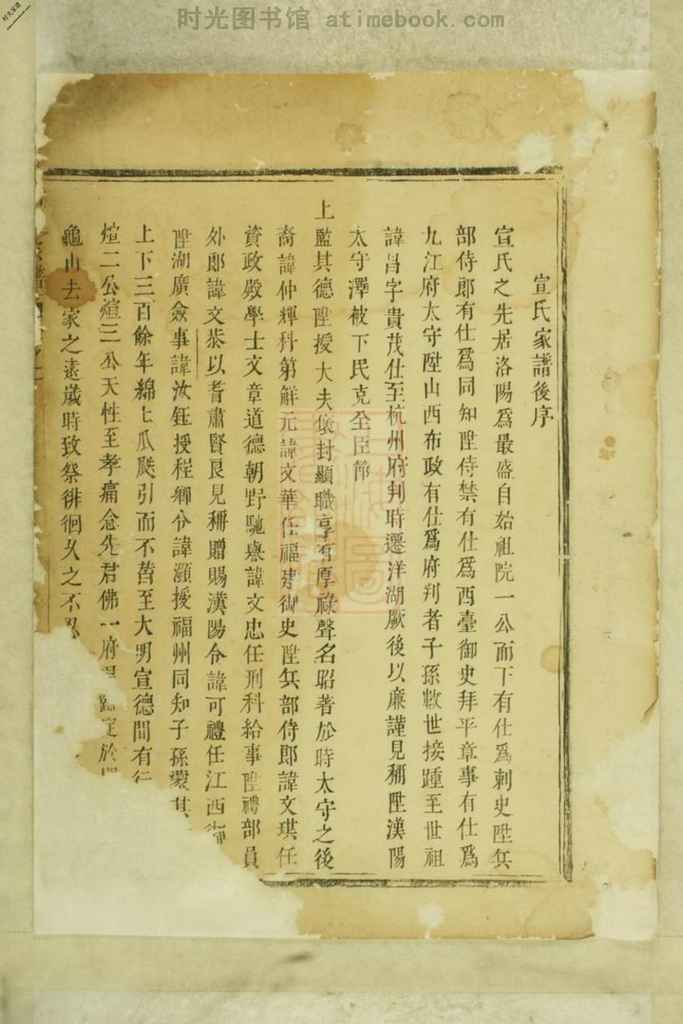 时光图书馆 atimebook.com
时光图书馆
宣氏家譜後序
宣氏之先居洛陽爲最盛自始祖院一公而下有仕爲刺史陞兵
部侍郎有仕爲同知陞侍禁有仕爲西臺御史拜平章事有仕爲
九江府太守陞山西布政有仕爲府判者子孫數世接踵至世祖
諱昌字貴茂仕至杭州府判時遷洋湖厥後以廉謹見稱陞漢陽
太守澤被下民克全臣節
上監其德陞授大夫僉封顯職享有厚祿聲名昭著於時太守之後
裔諱仲輝科第鮮元諱文華任福建御史陞兵部侍郎諱文琪任
資政殿學士文章道德朝野馳譽諱文忠任刑科給事陞禮部員
外郎諱文恭以耆肅賢良見稱贈賜漢陽令諱可禮任江西
陞湖廣僉事諱汝鈺授程鄉令諱灝授福州同知子孫
上下三百餘年綿七瓜瓞引而不替至大明宣德間有
煊二公煊三公天性至孝痛念先君佛一府
龜山去家之遠歲時致祭徘徊久之不忍